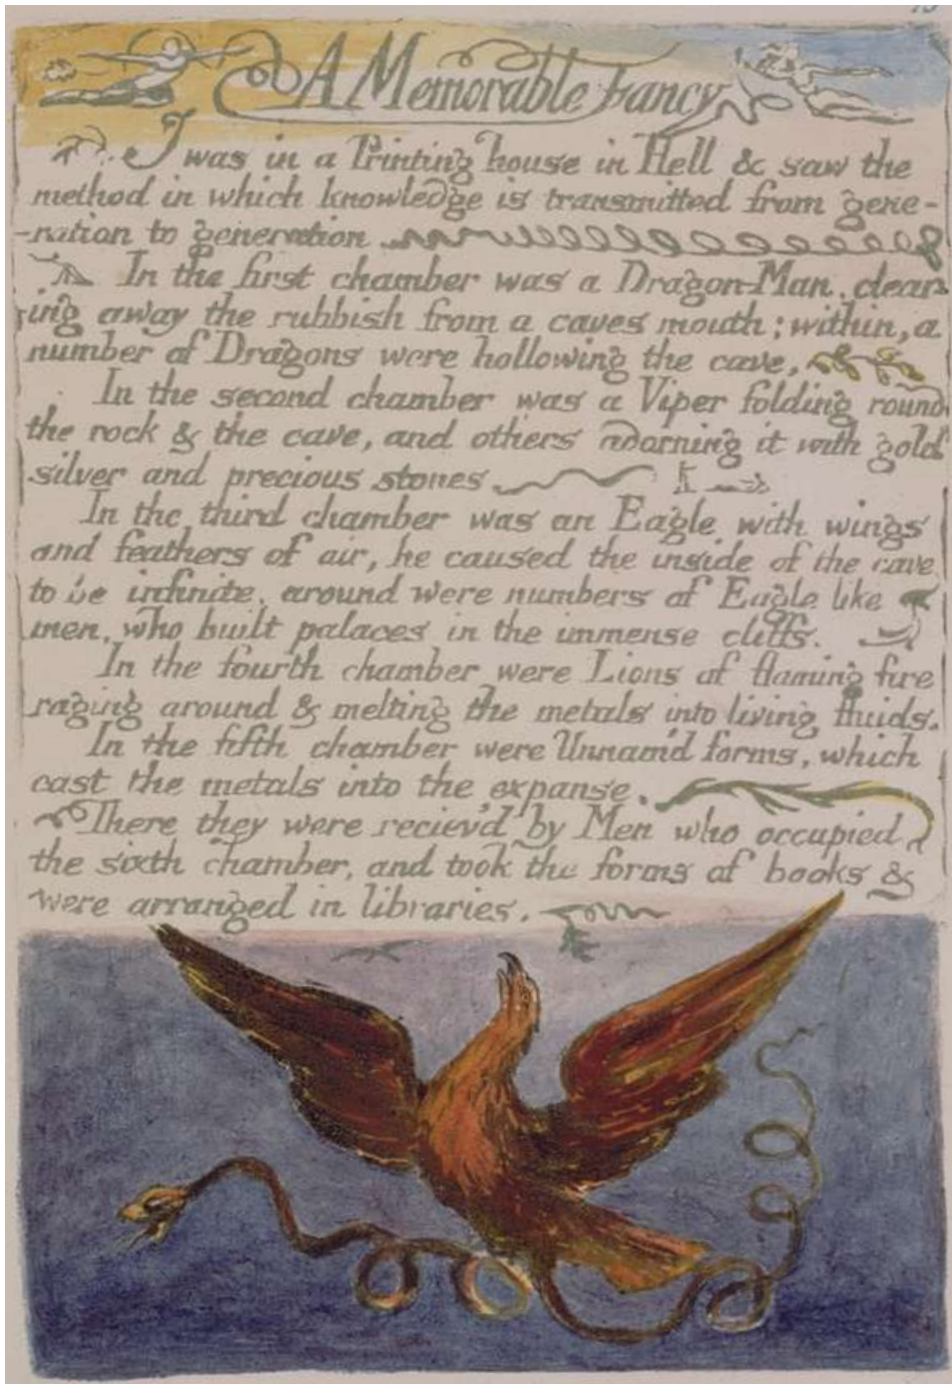 A Memorable Fancy
I was in a Printing house in Hell & saw the
method in which knowledge is transmitted from gene-
-ration to generation
In the first chamber was a Dragon-Man, clear-
ing away the rubbish from a caves mouth; within, a
number of Dragons were hollowing the cave,
In the second chamber was a Viper folding round
the rock & the cave, and others adorning it with gold
silver and precious stones
In the third chamber was an Eagle with wings
and feathers of air, he caused the inside of the cave
to be infinite, around were numbers of Eagle like
men, who built palaces in the immense cliffs.
In the fourth chamber were Lions of flaming fire
raging around & melting the metals into living fluids.
In the fifth chamber were Unnam'd forms, which
cast the metals into the expanse.
There they were reciev'd by Men who occupied
the sixth chamber, and took the forms of books &
were arranged in libraries.